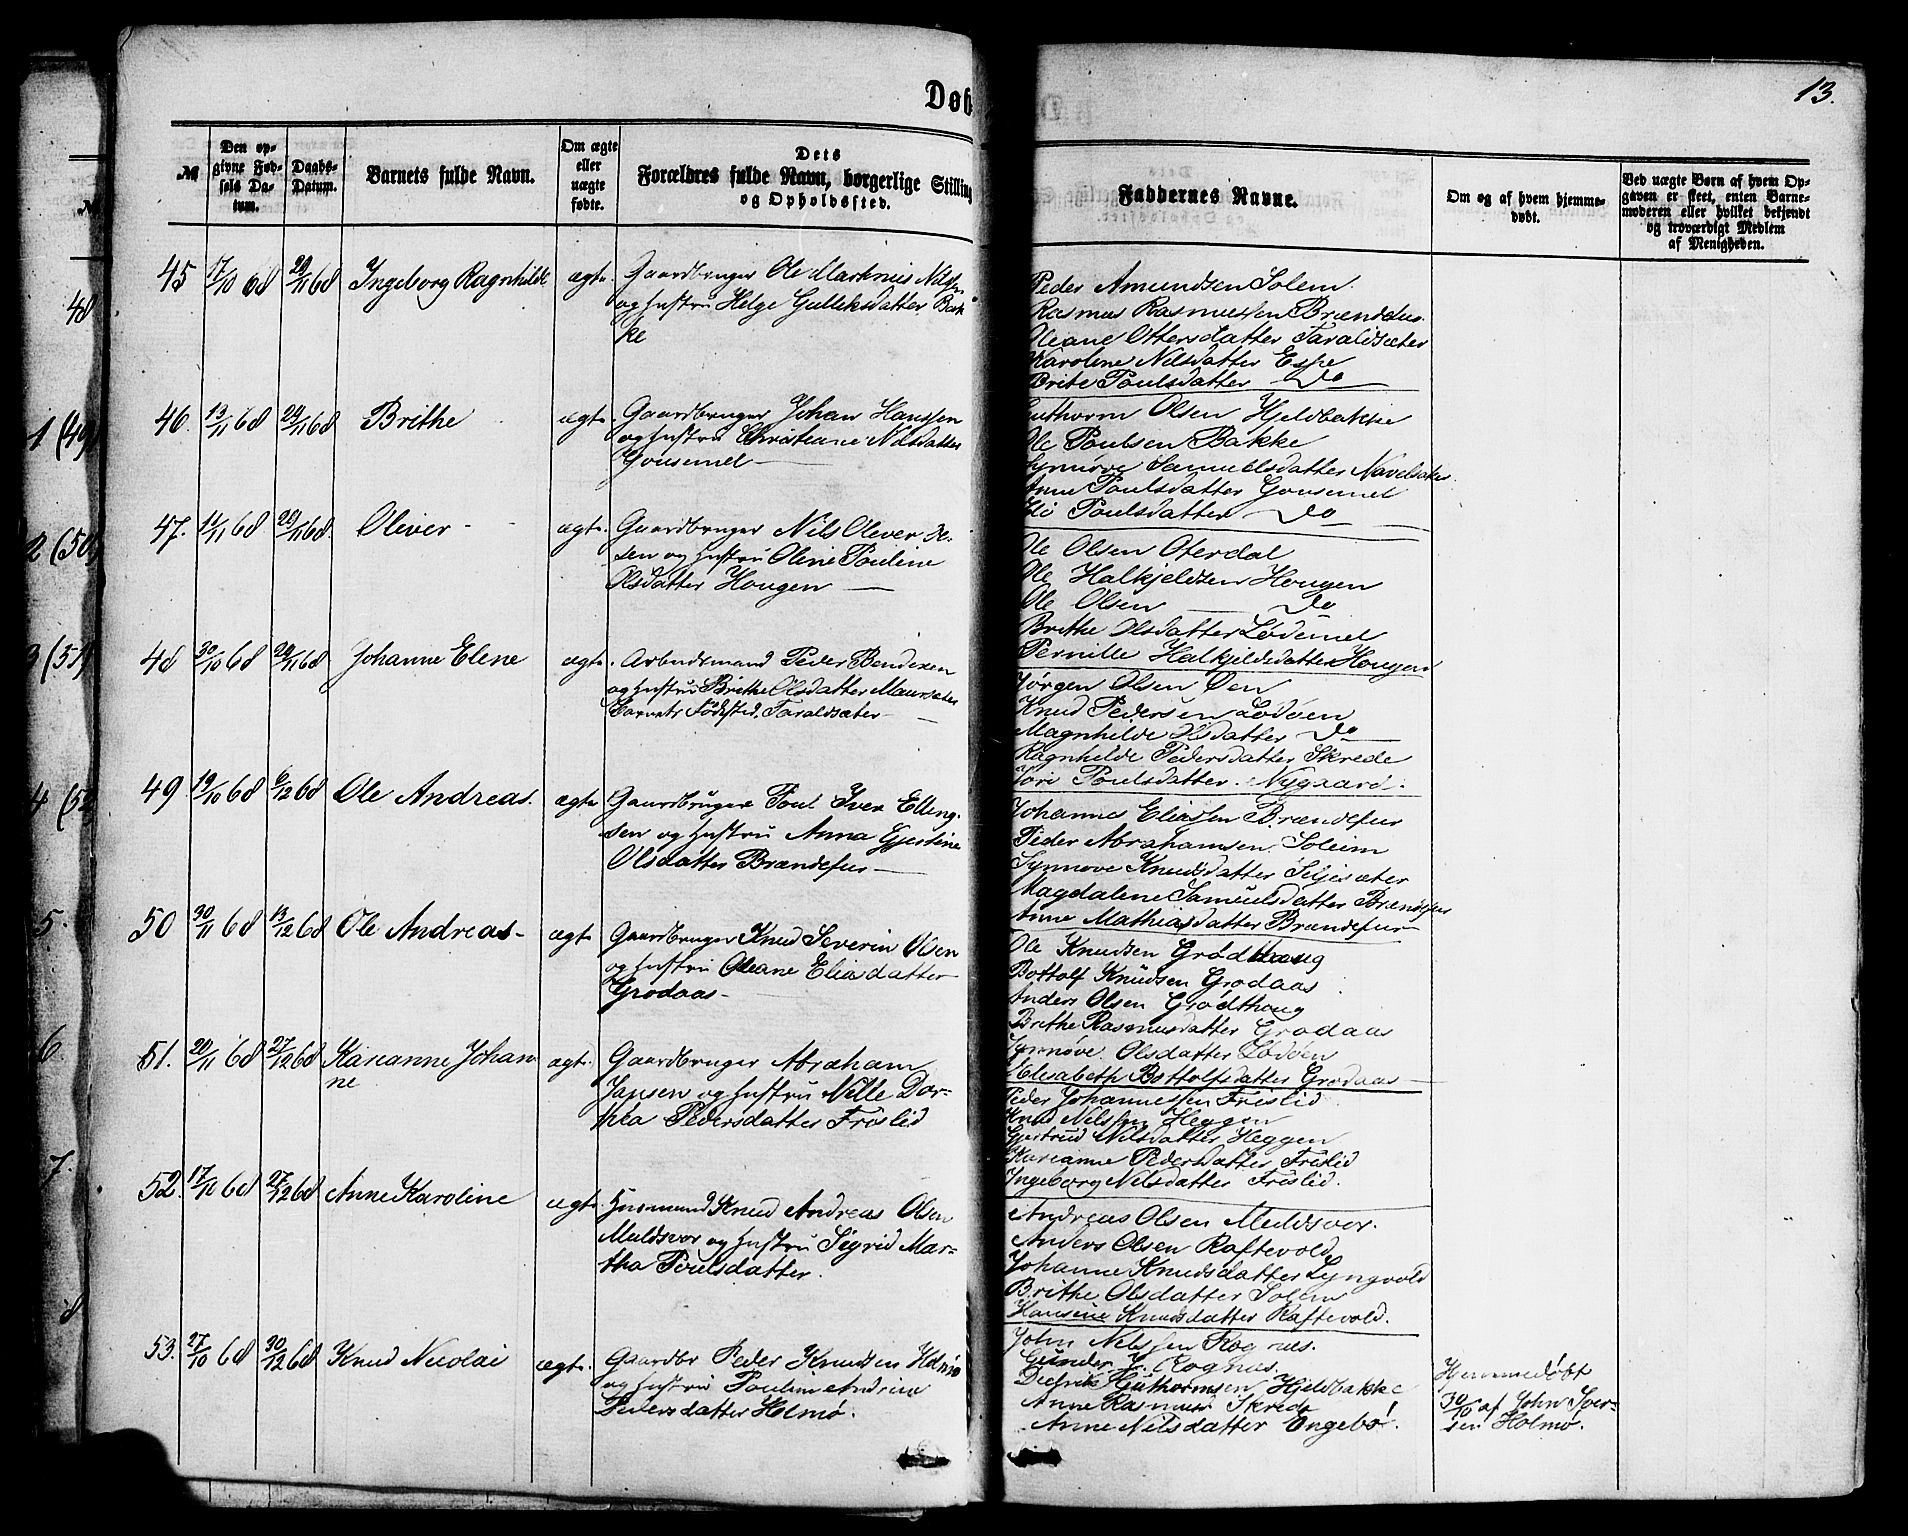 Døb
13.
№
Den opgivne Fødsels Datum.
Daabs-Datum.
Barnets fulde Navn.
Om ægte eller uægte fødte.
Dets Forældres fulde Navn, borgerlige Stilling og Opholdssted.
Faddernes Navne.
Om og af hvem hjemmedøbt.
Ved uægte Børn af hvem Opgaven er skeet, enten Barnemoderen eller hvilket bekjendt og troværdigt Medlem af Menigheden.
48
1 (49)
2 (50)
3 (51)
4 (52
5.
6.
7.
8
45 17/10 68 29/11 68 Ingeborg Ragnhilde ægte Gaardbruger Ole Martinus Nilsen
og Hustru Helge Gulleksdatter Bak
ke
Peder Amundsen Solem.
Rasmus Rasmussen Brændefur
Oleane Ottersdatter Taraldsæter
Karoline Nilsdatter Espe
Brite Poulsdatter — Do —
46. 13/11 68 29/11 68 Brithe ægte. Gaardbruger Johan Hanssen
og Hustru Christiane Nilsdatter
Gousemel —
Guthorm Olsen Hjelbakke
Ole Poulsen Bakke
Synnøve Samuelsdatter Navelsaker
Anne Poulsdatter Gousemel
Poulsdatter — Do —
47. 11/11 68 29/11 68. Oliver - ægte. Gaardbruger Nils Oliver Ol-
sen og Hustru Oline Pouline
Olsdatter Hougen —
Ole Olsen Oterdal
Ole Halkjeldsen Hougen
Ole Olsen — Do
Brithe Olsdatter Lødemel
Pernille Halkjeldsdatter Hougen
48 30/10 68 29/11 68 Johanne Elene ægte. Arbeidsmand Peder Bendixen
og Hustru Brithe Olsdatter Maursæter
Barnets Fødested, Taraldsæter —
Jørgen Olsen Øen
Knud Pedersen Lødøen
Magnhilde Olsdatter — Do —
Ragnhilde Pedersdatter Skrede
Poulsdatter. Nygaard.
49 19/10 68 6/12 68 Ole Andreas. ægte Gaardbruger Poul Iver Elling-
sen og Hustru Anna Gjertine
Olsdatter Brændefur —
Johannes Eliassen Brændefur
Peder Abrahamsen Soleim
Synnøve Knudsdatter Siljesæter
Magdalene Samuelsdatter Brændefur
Anne Mathiasdatter Brændefur —
50 30/11 68 13/12 68 Ole Andreas - ægte Gaardbruger Knud Severin Olsen
og Hustru Oleane Eliasdatter
Grodaas —
Ole Knudsen Grødthoug
Bottolf Knudsen Grodaas
Anders Olsen Grødthoug
Brithe Rasmusdatter Grodaas
Synnøve. Olsdatter Lødøen
Elisabeth Bottolfsdatter Grodaas —
51. 20/11 68 27/12 68 Karianne Johan
ne
ægte. Gaardbruger Abraham
Jansen og Hustru Nille Dor-
thea Pedersdatter Frislid
Peder Johannessen Frislid
Knud Nilssen Heggen
Gjertrud Nilsdatter Heggen
Karianne Pedersdatter Frislid
Ingeborg Nilsdatter Frislid.
52. 17/10 68 27/12 68 Anne Karoline ægte. Husmand Knud Andreas Olsen
Muldsvor og Hustru Sigrid Mar-
tha Poulsdatter.
Andreas Olsen Muldsvor.
Anders Olsen Raftevold
Johanne Knudsdatter Lyngvold
Brithe Olsdatter Solem
Hansine Knudsdatter Raftevold.
53. 27/10 68 30/12 68 Knud Nicolai ægte. Gaardbr Peder Knudsen Holmø
og Hustru Pouline Andrine
Pedersdatter Holmø.
John Nilssen Rognæs.
Gunder Rognæs.
Didrik Guthormsen Hjelbakke
Anne Rasmus Skrede
Anne Nilsdatter Ongebø.
Hjemmedøbt
30/10 af John Iver-
sen Holmø.